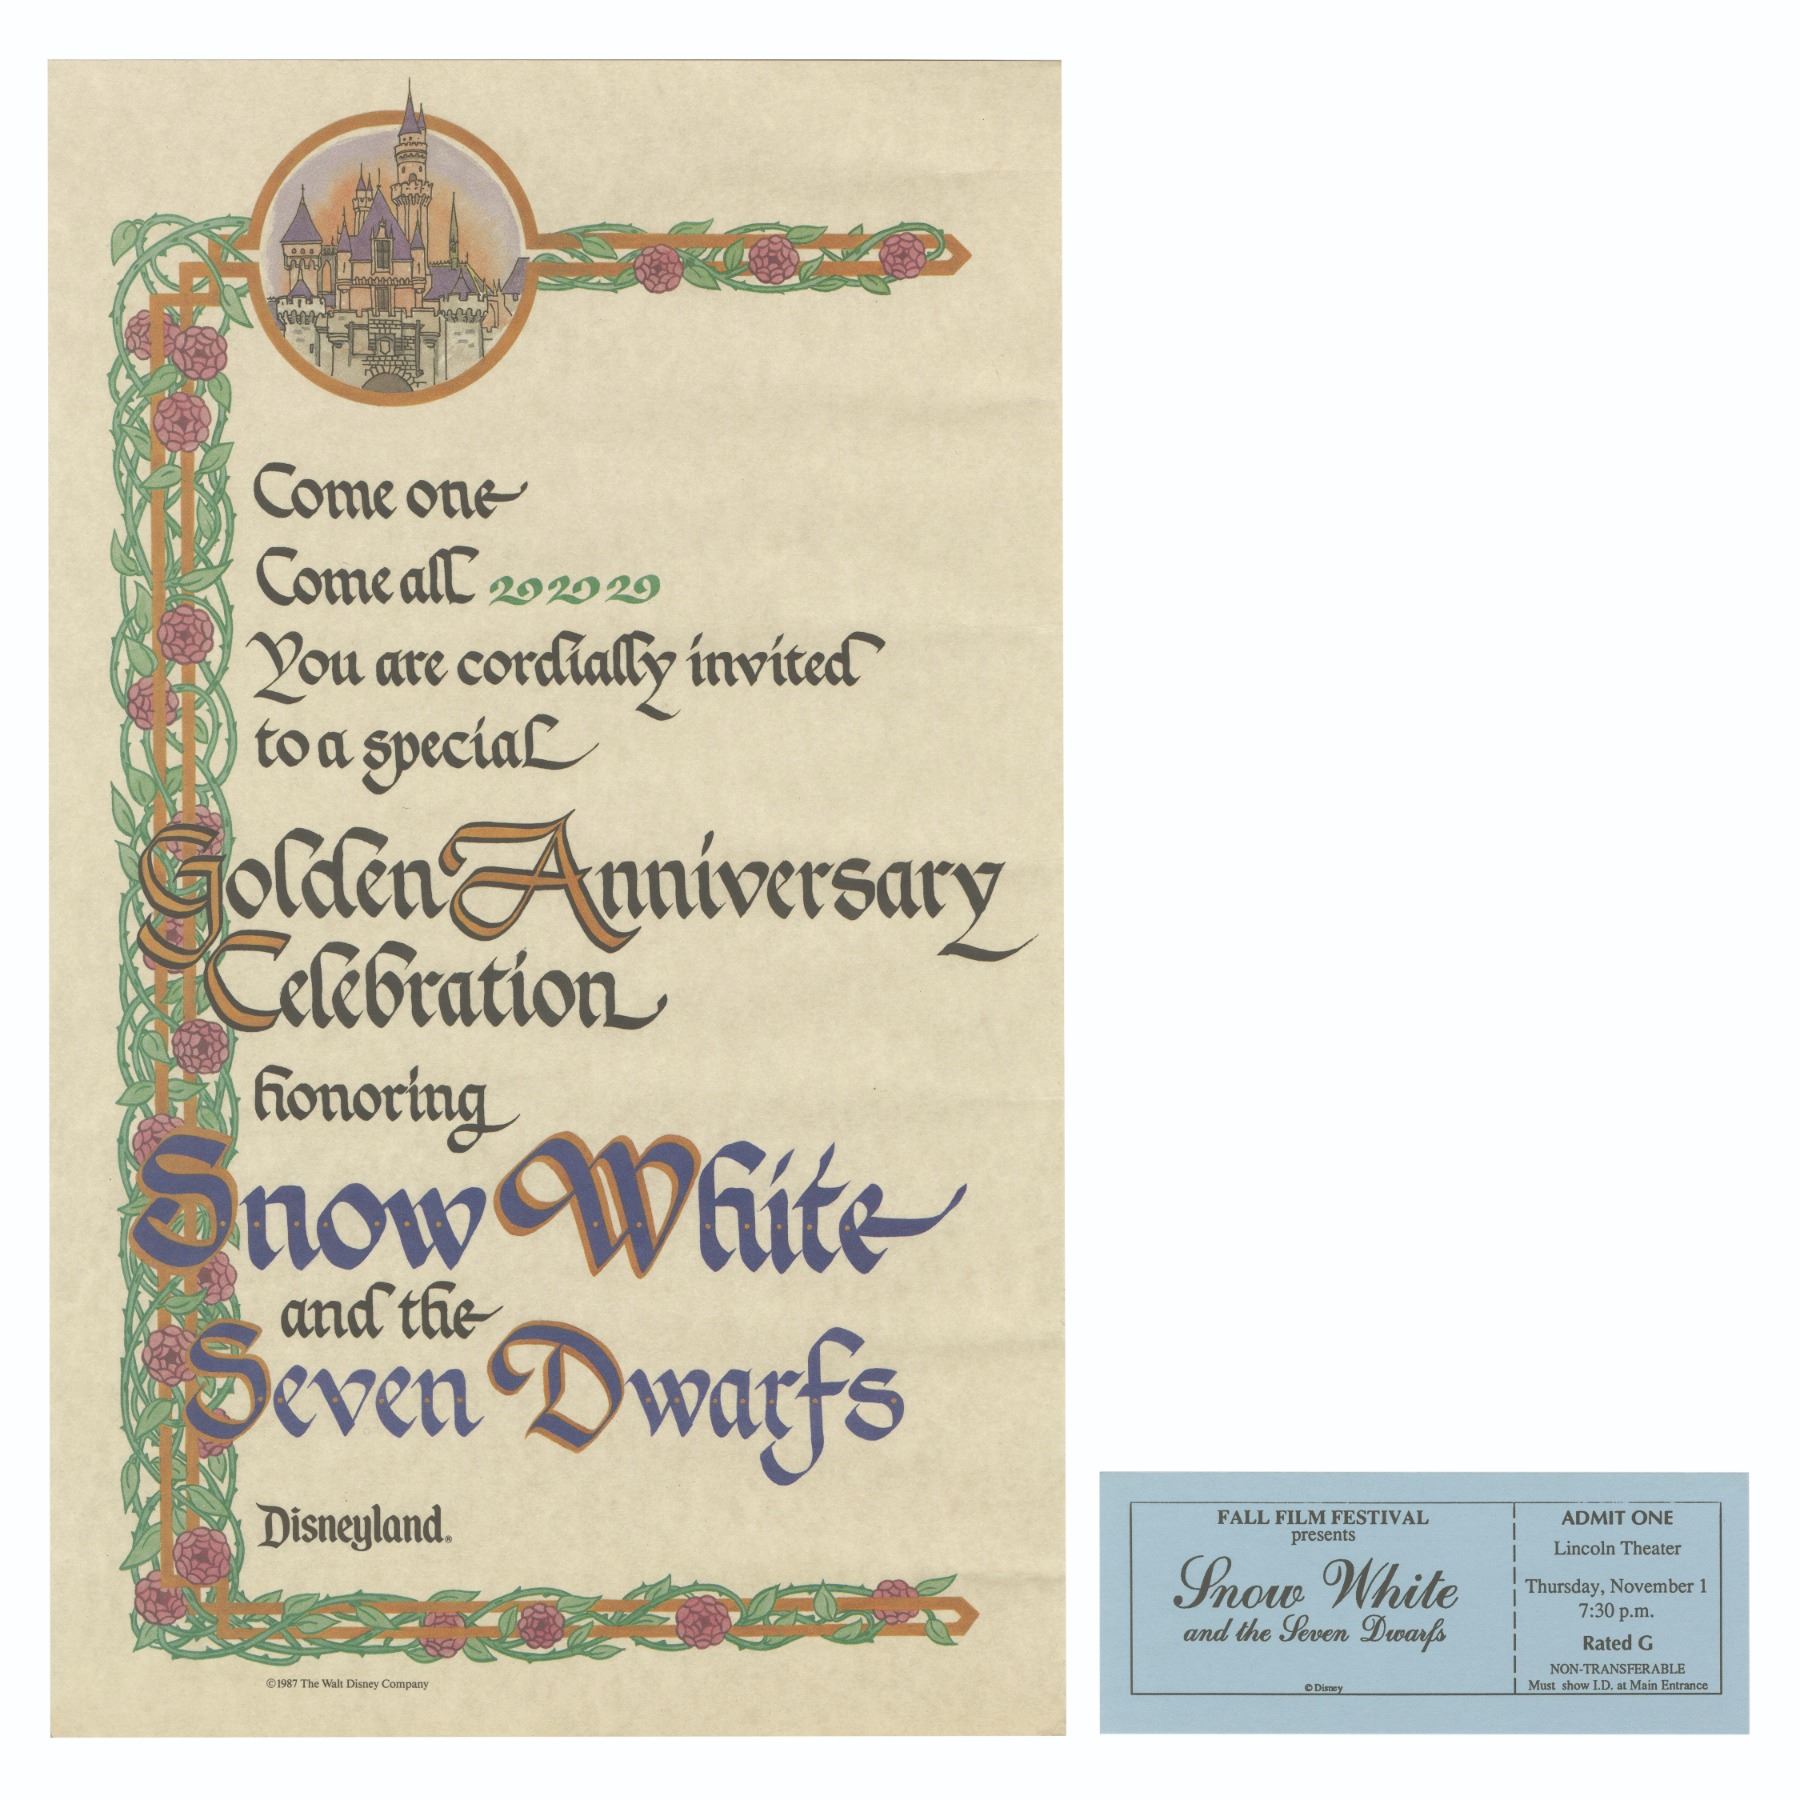 Come one
Come all
You are cordially invited
to a special
Golden Anniversary
Celebration
honoring
Snow White
and the
Seven Dwarfs
Disneyland®
©1987 The Walt Disney Company
FALL FILM FESTIVAL
presents
Snow White
and the Seven Dwarfs
© Disney
ADMIT ONE
Lincoln Theater
Thursday, November 1
7:30 p.m.
Rated G
NON-TRANSFERABLE
Must show I.D. at Main Entrance